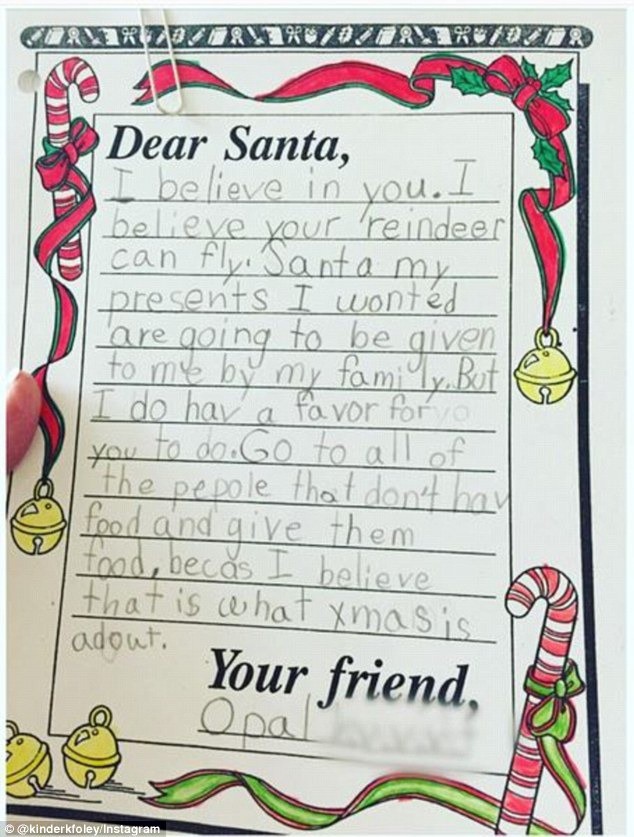 Dear Santa,
I believe in you. I
believe your reindeer
can fly. Santa my
presents I wonted
are going to be given
to me by my family. But
I do hav a favor for yo
you to do. Go to all of
the pepole that don't hav
food and give them
food, becas I believe
that is what xmas is
adout.
Your friend,
Opal
© @kinderkfoley/Instagram